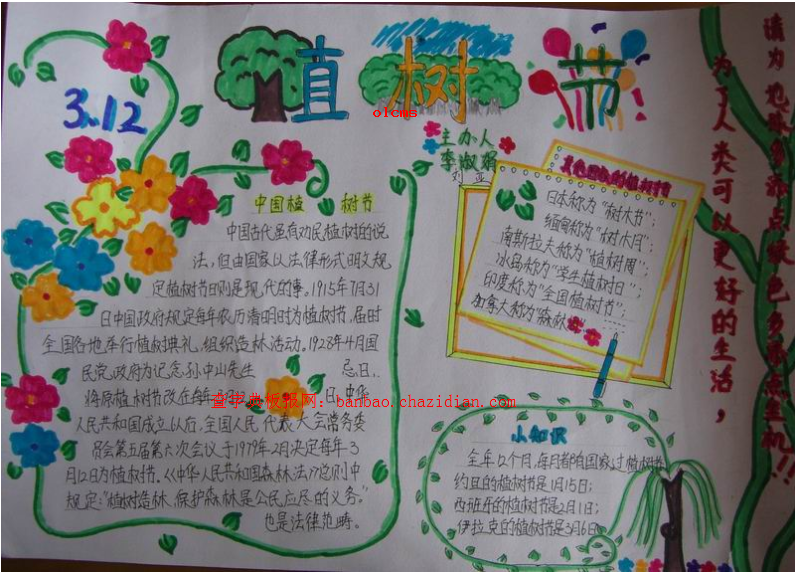 3.12
植树节
olcms
主办人
李淑娟
刘亚
中国植 树节
中国古代虽有劝民植树的说
法，但由国家以法律形式明文规
定植树节日则是现代的事。1915年7月31
日中国政府规定每年农历清明时为植树节，届时
全国各地举行植树典礼，组织造林活动。1928年4月国
民党政府为记念孙中山先生 忌日，
将原植树节改在每年3月 日，中华
查字典板报网：banbao.chazidian.com
人民共和国成立以后，全国人民代表大会常务委
员会第五届第六次会议于1979年2月决定每年3
月12日为植树节。《中华人民共和国森林法》总则中
规定：“植树造林、保护森林是公民应尽的义务。”
也是法律范畴。
的植树节
日本称为“树木节”；
缅甸称为“树木月”；
南斯拉夫称为“植树周”；
冰岛称为“学生植树日”；
印度称为“全国植树节”；
加拿大称为“森林
小知识
全年12个月，每月都有国家过植树节
约旦的植树节是1月15日；
西班牙的植树节是2月1日；
伊拉克的植树节是3月6日
为了人类可以更好的生活，
请为地球多添点绿色多添点生机!!